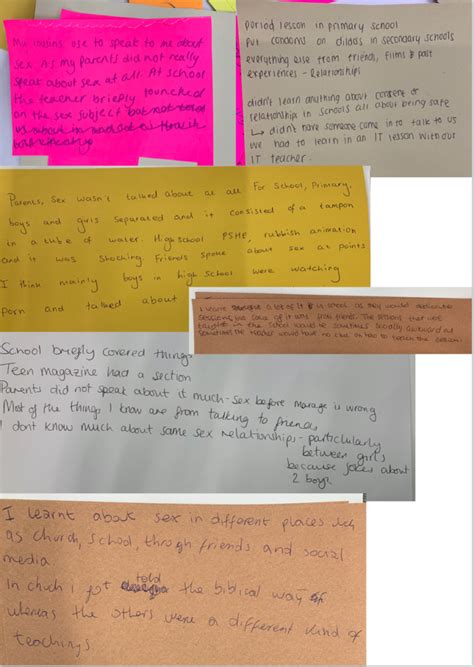 My cousins use to speak to me about
sex. As my parents did not really
speak about sex at all. At school
the teacher briefly touched
on the sex subject but not
us about
period lesson in primary school
put condoms on dildos in secondary schools
everything else from friends, films & past
experiences - relationships
didn't learn anything about consent or
relationship in schools all about being safe
↳ didn't have someone come in to talk to us
we had to learn in an IT lesson without
IT teacher.
Parents, sex wasn't talked about at all. For school, Primary,
boys and girls separated and it consisted of a tampon
in a tube of water. High school PSHE, rubbish animation
and it was shocking. Friends spoke about sex at points
I think mainly boys in high school were watching
porn and talked about
I learnt a lot of it in school as they would dedicate
sessions, some of it was from friends. The sessions that were
taught in the school would be sometimes socially awkward as
sometimes the teacher would have no clue on how to teach the session.
School briefly covered things
Teen magazine had a section
Parents did not speak about it much - sex before marage is wrong
Most of the thing, I know are from talking to friends
I dont know much about same sex relationships - particlularly
between girls
because jokes about
2 boys
I learnt about sex in different places such
as church, school, through friends and social
media.
In chuch i got told the biblical way of
whereas the others were a different kind of
teachings.